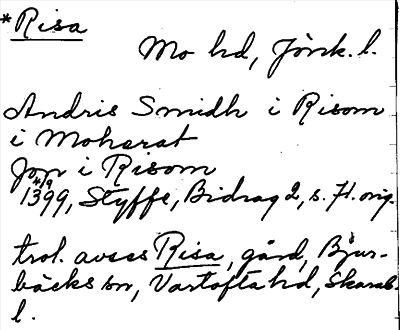 *Risa
Mo hd, Jönk. l.
Andris Smidh i Risom
i Moharat
Jon i Risom
1399 4/9, Styffe, Bidrag 2, s. 71. orig.
trol. avses Risa, gård, Bjur-
bäcks sn, Vartofta hd, Skarab.
l.